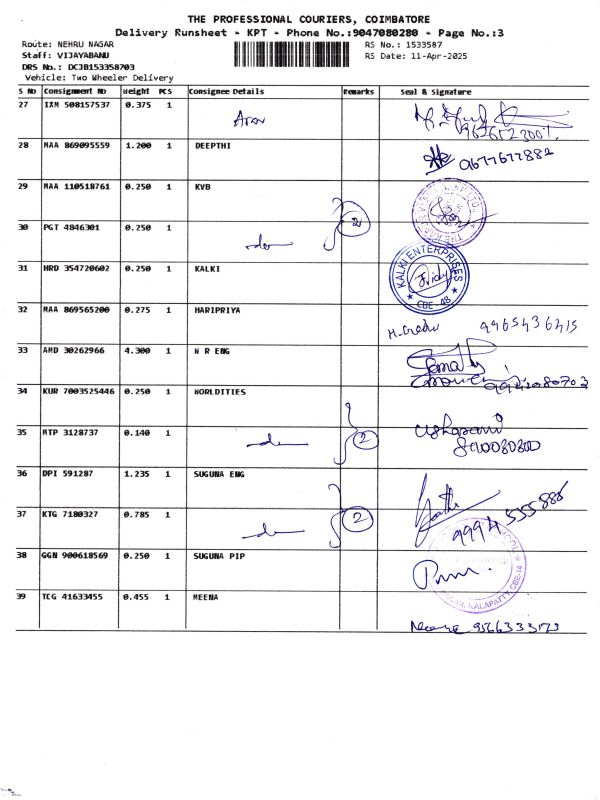 THE PROFESSIONAL COURIERS, COIMBATORE
Delivery Runsheet - KPT - Phone No.:9047080280 - Page No.:3
Route: NEHRU NAGAR RS No.: 1533587
Staff: VIJAYABANU RS Date: 11-Apr-2025
DRS No.: DCJB153358703
Vehicle: Two Wheeler Delivery
S No Consignment No Weight PCS Consignee Details Remarks Seal & Signature
27 IXM 508157537 0.375 1
28 MAA 869095559 1.200 1 DEEPTHI 9677677882
29 MAA 110518761 0.250 1 KVB
2
30 PGT 4846301 0.250 1
31 HRD 354720602 0.250 1 KALKI KALKI ENTERPRISES CBE-48
32 MAA 869565200 0.275 1 HARIPRIYA 9965436415
33 AMD 30262966 4.300 1 N R ENG
34 KUR 7003525446 0.250 1 WORLDITIES
35 MTP 3128737 0.140 1 2
36 DPI 591287 1.235 1 SUGUNA ENG
37 KTG 7180327 0.785 1 2
38 GGN 900618569 0.250 1 SUGUNA PIP
KALAPATTY, CBE-14
39 TCG 41633455 0.455 1 MEENA
9566333173